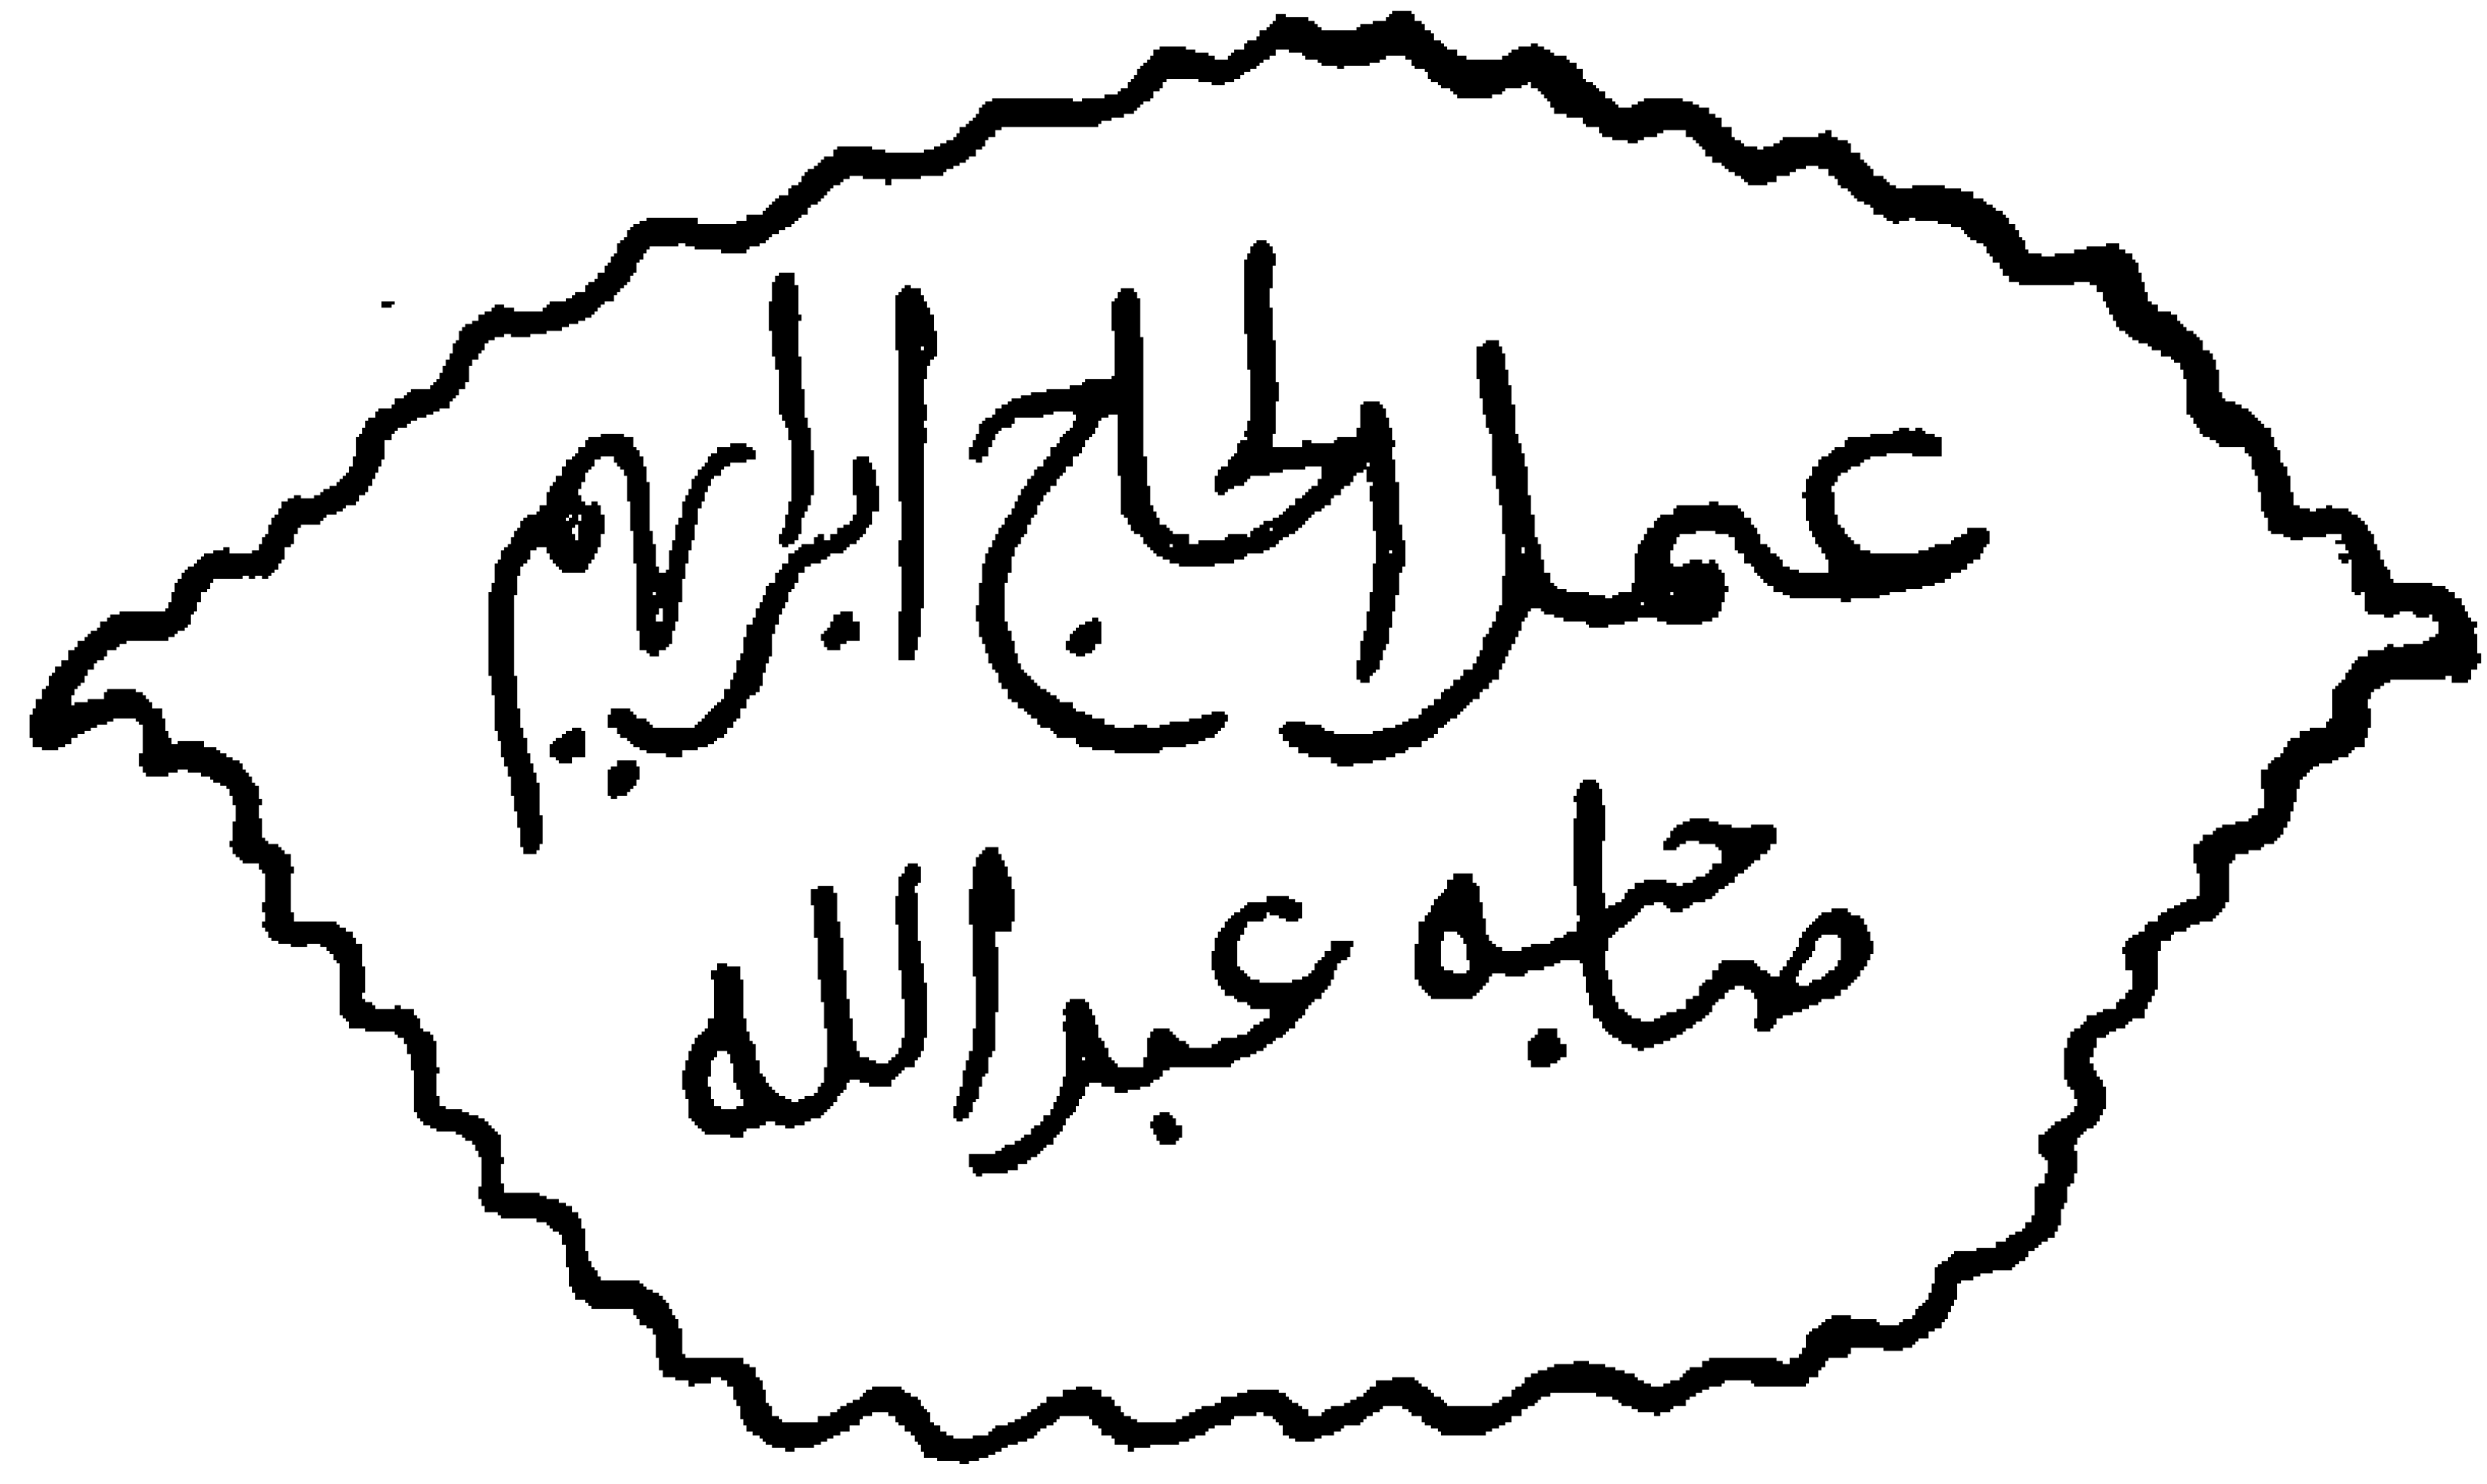 عمر الحاج ابراهيم
صاحبه عبد الله